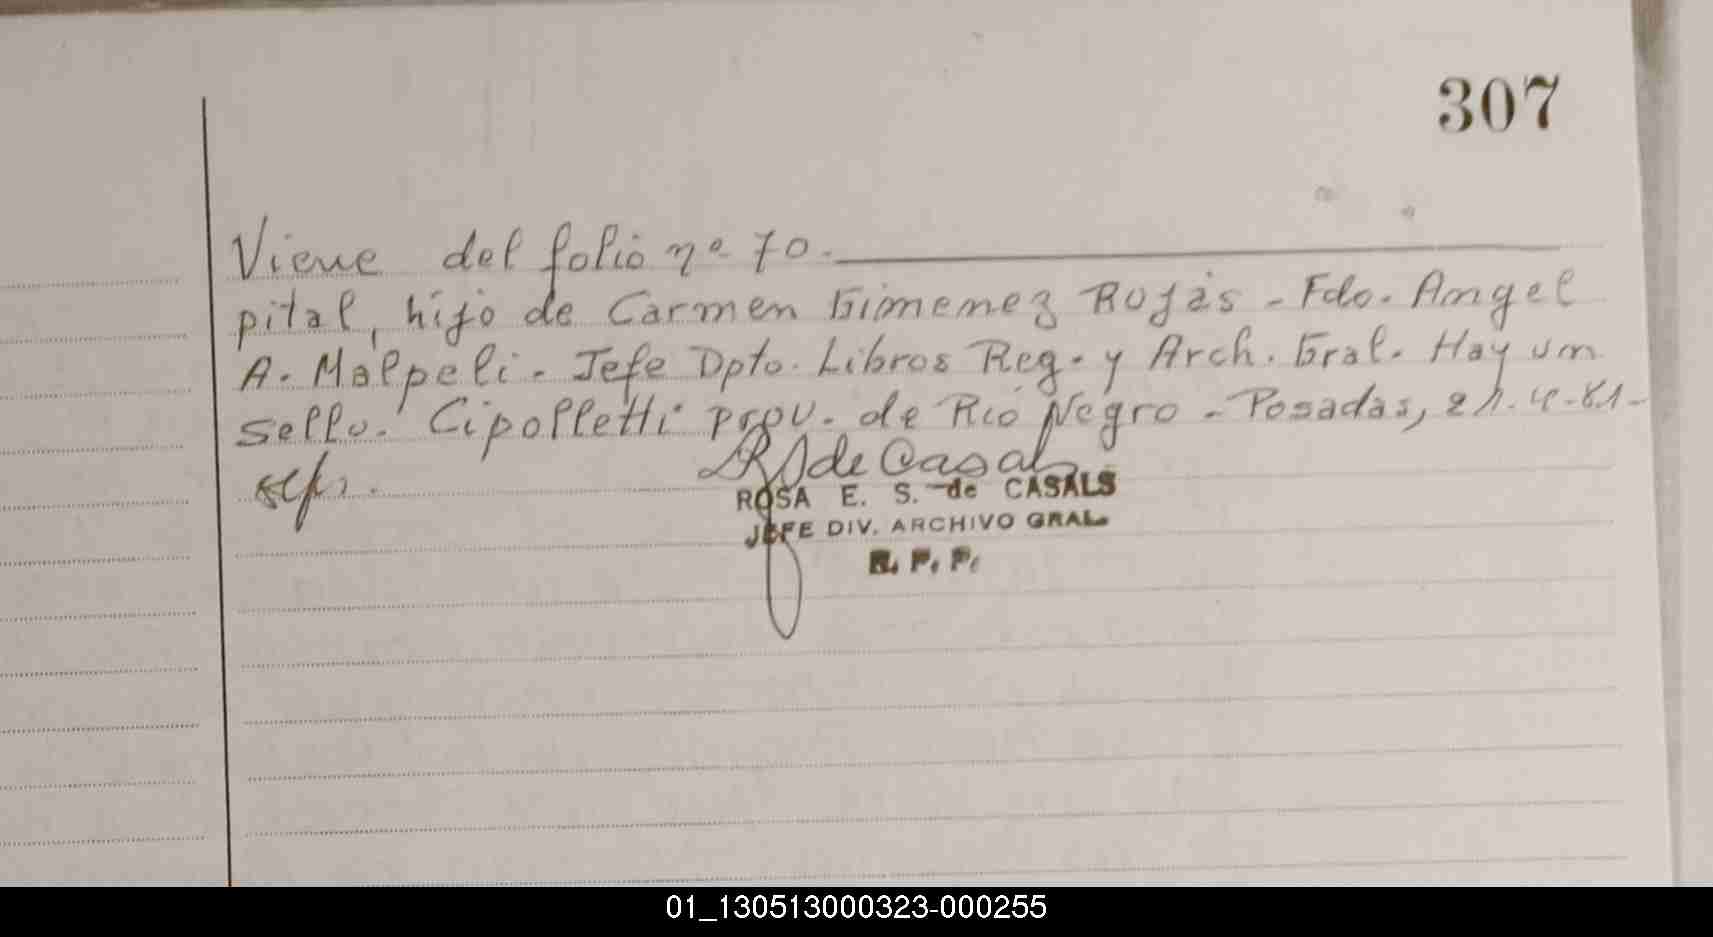 307
Viene del folio nº 70.
pital, hijo de Carmen Gimenez Rojas - Fdo. Angel
A. Malpeli - Jefe Dpto. Libros Reg. y Arch. Gral. Hay un
sello. Cipolletti prov. de Rio Negro - Posadas, 21-4-81-
R S de Casals
ROSA E. S. de CASALS
JEFE DIV. ARCHIVO GRAL.
R. P. P.
01_130513000323-000255